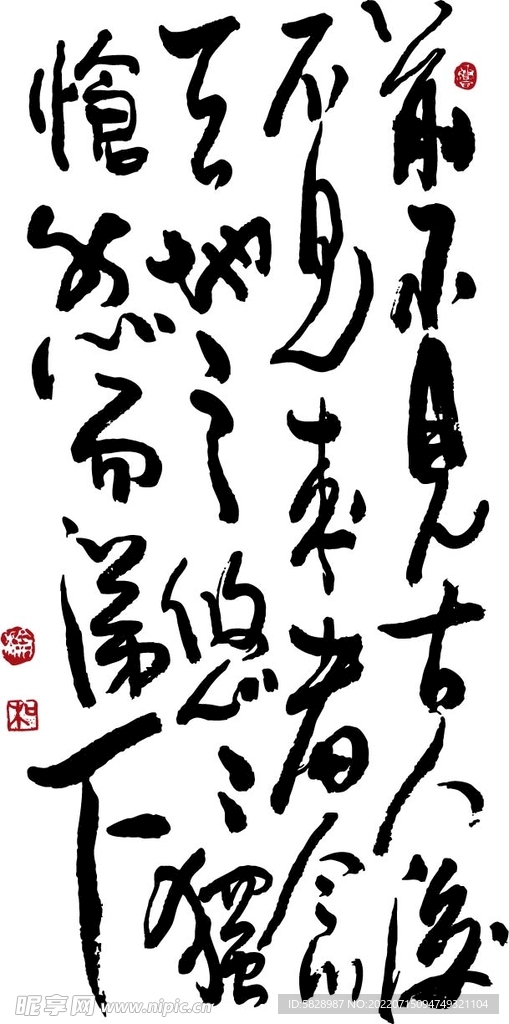 前不見古人後
不見來者念
天地之悠悠獨
愴然而涕下
昵享网 www.nipic.cn
ID:5828987 NO:20220715094749321104